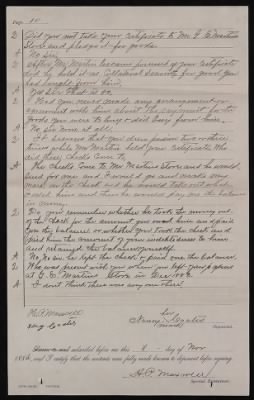 Page 10
Q Did you not take your certificate to Mr G. C. Martin's
Store and pledge it for goods.
A No sir.
Q After Mr Martin became possessed of your certificate
did he hold it as collateral security for goods you
had bought from him.
A Yes sir that is so.
Q Had you ever made any arrangement or
agreement with him about the
goods you were to buy or did buy from him.
A No sir none at all.
Q It appears that you drew pension two or three
times while Mr Martin held your certificate. Who
did these checks come to
A The checks came to Mr Martin's store and he would
send for me and I would go and made my
mark on the check and he would take out what
I owed him and then he would pay me the balance
in money.
Q Do you remember whether he took the money out
of the check for the amount you owed him and paid
you the balance or whether you took the check and
paid him the amount of your indebtedness to him
and retained the balance yourself.
A No sir. he kept the check & paid me the balance.
Q Who was present with you when you left your papers
at G. C. Martin's Store in Dec
A I don't think there was any one there.
H. P. Maxwell
her
Nancy Coates
mark
Deponent.
Sworn to and subscribed before me this 8 day of Nov
188, and I certify that the contents were fully made known to deponent before signing.
H. P. Maxwell
Special Examiner.